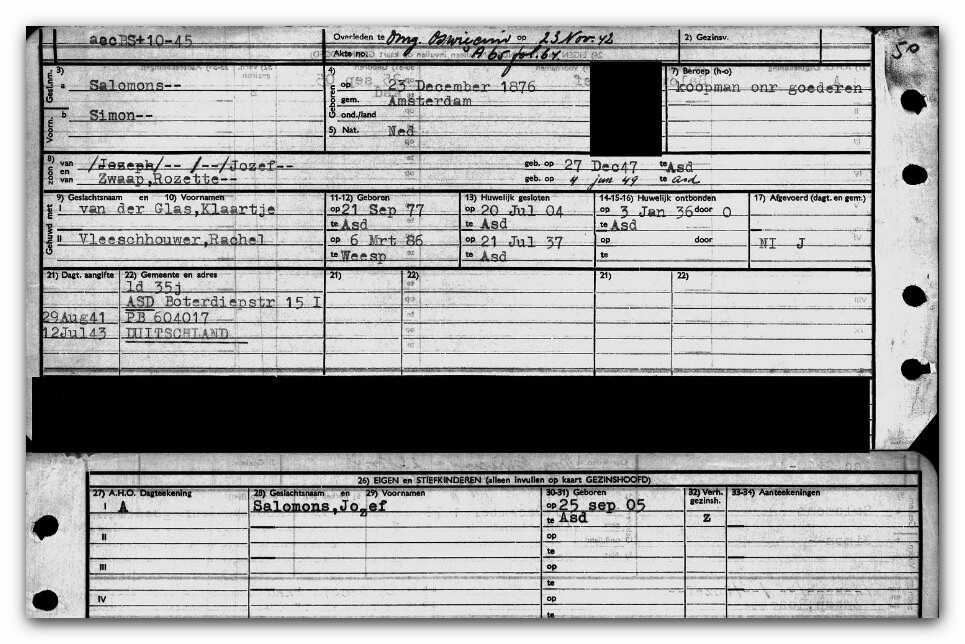 aacBS+10-45
Overleden te Omg. Oswiecim op 23 Nov. 42
2) Gezinsv.
Akte no. A 65 fol. 67
50
Gesl.nm.
3)
a Salomons--
Voorn.
b Simon--
Geboren
4)
op 23 December 1876
gem. Amsterdam
ond./land
5) Nat. Ned
7) Beroep (h-o)
koopman onr goederen
8) zoon en van /Jozeph/-- /--/Jozef-- geb. op 27 Dec47 te Asd
van Zwaap,Rozette-- geb. op 4 jun 49 te Asd
Gehuwd met
9) Geslachtsnaam en 10) Voornamen
11-12) Geboren
13) Huwelijk gesloten
14-15-16) Huwelijk ontbonden
17) Afgevoerd (dagt. en gem.)
I van der Glas,Klaartje op 21 Sep 77 op 20 Jul 04 op 3 Jan 36 door O
te Asd te Asd te Asd
II Vleeschhouwer,Rachel op 6 Mrt 86 op 21 Jul 37 op door NI J
te Weesp te Asd te
21) Dagt. aangifte 22) Gemeente en adres 21) 22) 21) 22)
ld 35j
ASD Boterdiepstr 15 I
29Aug41 PB 604017
12Jul43 DUITSCHLAND
26) EIGEN en STIEFKINDEREN (alleen invullen op kaart GEZINSHOOFD)
27) A.H.O. Dagteekening 28) Geslachtsnaam en 29) Voornamen 30-31) Geboren 32) Verh. gezinsh. 33-34) Aanteekeningen
I A Salomons,Jozef op 25 sep 05
te Asd Z
II op
te
III op
te
IV op
te